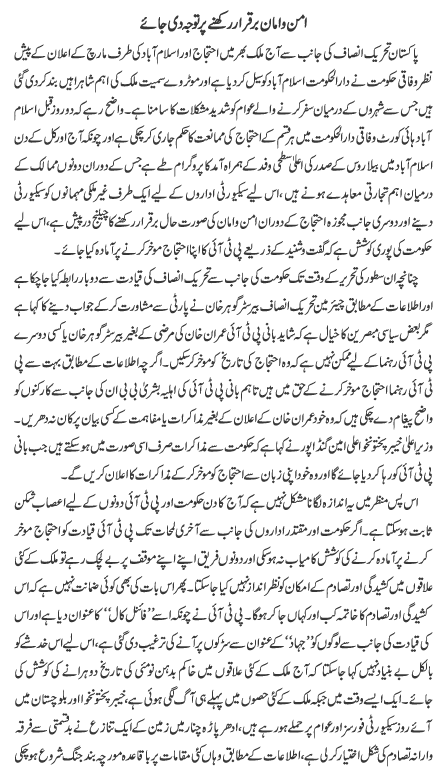 امن و امان برقرار رکھنے پر توجہ دی جائے
پاکستان تحریک انصاف کی جانب سے آج ملک بھر میں احتجاج اور اسلام آباد کی طرف مارچ کے اعلان کے پیش
نظر وفاقی حکومت نے دارالحکومت اسلام آباد کو سیل کر دیا ہے اور موٹروے سمیت ملک کی اہم شاہراہیں بند کر دی گئی
ہیں جس سے شہروں کے درمیان سفر کرنے والے عوام کو شدید مشکلات کا سامنا ہے۔ واضح رہے کہ دو روز قبل اسلام
آباد ہائی کورٹ وفاقی دارالحکومت میں ہر قسم کے احتجاج کی ممانعت کا حکم جاری کر چکی ہے اور چونکہ آج اور کل کے دن
اسلام آباد میں بیلاروس کے صدر کی اعلیٰ سطحی وفد کے ہمراہ آمد کا پروگرام طے ہے جس کے دوران دونوں ممالک کے
درمیان اہم تجارتی معاہدے ہونے ہیں، اس لیے سیکیورٹی اداروں کے لیے ایک طرف غیرملکی مہمانوں کو سیکیورٹی
دینے اور دوسری جانب مجوزہ احتجاج کے دوران امن و امان کی صورت حال برقرار رکھنے کا چیلنج درپیش ہے، اس لیے
حکومت کی پوری کوشش ہے کہ گفت و شنید کے ذریعے پی ٹی آئی کا اپنا احتجاج موخر کرنے پر آمادہ کیا جائے۔
چنانچہ ان سطور کی تحریر کے وقت تک حکومت کی جانب سے تحریک انصاف کی قیادت سے دو بار رابطہ کیا جا چکا ہے
اور اطلاعات کے مطابق چیئرمین تحریک انصاف بیرسٹر گوہر خان نے پارٹی سے مشاورت کر کے جواب دینے کا کہا ہے
مگر بعض سیاسی مبصرین کا خیال ہے کہ شاید بانی پی ٹی آئی عمران خان کی مرضی کے بغیر بیرسٹر گوہر خان یا کسی دوسرے
پی ٹی آئی رہنما کے لیے ممکن نہیں ہے کہ وہ احتجاج کی تاریخ کو موخر کر سکیں۔ اگرچہ اطلاعات کے مطابق بہت سے پی
ٹی آئی رہنما احتجاج موخر کرنے کے حق میں ہیں تاہم بانی پی ٹی آئی کی اہلیہ بشریٰ بی بی ان کی جانب سے کارکنوں کو
واضح پیغام دے چکی ہیں کہ وہ خود عمران خان کے اعلان کے بغیر مذاکرات یا مفاہمت کے کسی بیان پر کان نہ دھریں۔
وزیراعلیٰ خیبر پختونخوا علی امین گنڈاپور نے کہا ہے کہ حکومت سے مذاکرات صرف اسی صورت میں ہو سکتے ہیں جب بانی
پی ٹی آئی کو رہا کر دیا جائے گا اور وہ خود اپنی زبان سے احتجاج کو موخر کر کے مذاکرات کا اعلان کریں گے۔
اس پس منظر میں یہ اندازہ لگانا مشکل نہیں ہے کہ آج کا دن حکومت اور پی ٹی آئی دونوں کے لیے اعصاب شکن
ثابت ہو سکتا ہے۔ اگر حکومت اور مقتدر اداروں کی جانب سے آخری لمحات تک پی ٹی آئی قیادت کو احتجاج موخر
کرنے پر آمادہ کرنے کی کوشش کامیاب نہ ہو سکی اور دونوں فریق اپنے اپنے موقف پر بے لچک رہے تو ملک کے کئی
علاقوں میں کشیدگی اور تصادم کے امکان کو نظر انداز نہیں کیا جا سکتا۔ پھر اس بات کی بھی کوئی ضمانت نہیں ہے کہ اس
کشیدگی اور تصادم کا خاتمہ کب اور کہاں جا کر ہوگا۔ پی ٹی آئی نے چونکہ اسے ''فائنل کال'' کا عنوان دیا ہے اور اس
کی قیادت کی جانب سے لوگوں کو ''جہاد'' کے عنوان سے سڑکوں پر آنے کی ترغیب دی گئی ہے، اس لیے اس خدشے کو
بالکل بے بنیاد نہیں کہا جا سکتا کہ آج ملک کے کئی علاقوں میں خاکم بدہن نو مئی کی تاریخ دوہرانے کی کوشش کی
جائے۔ ایک ایسے وقت میں جبکہ ملک کے کئی حصوں میں پہلے ہی آگ لگی ہوئی ہے، خیبر پختونخوا اور بلوچستان میں
آئے روز سیکیورٹی فورسز اور عوام پر حملے ہو رہے ہیں، ادھر پاڑہ چنار میں زمین کے ایک تنازع نے بدقسمتی سے فرقہ
وارانہ تصادم کی شکل اختیار کر لی ہے، اطلاعات کے مطابق وہاں کئی مقامات پر باقاعدہ مورچہ بند جنگ شروع ہو چکی